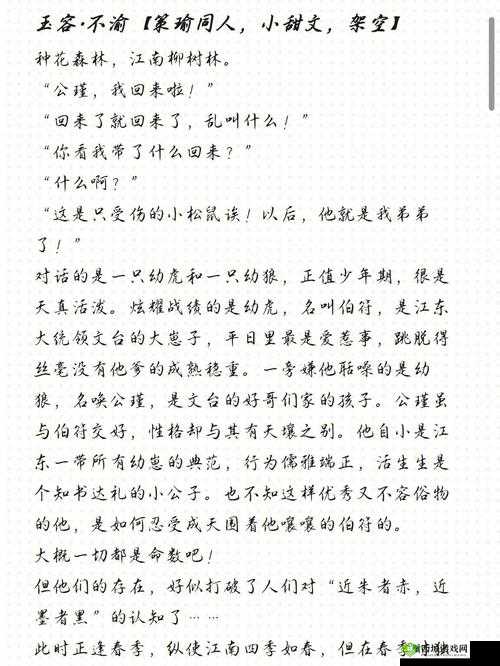 玉容·不渝【策瑜同人，小甜文，架空】
种花森林，江南柳树林。
“公瑾，我回来啦！”
“回来了就回来了，乱叫什么！”
“你看我带了什么回来？”
“什么啊？”
“这是只受伤的小松鼠诶！以后，他就是我弟弟
了！”
对话的是一只幼虎和一只幼狼，正值少年期，很是
天真活泼。炫耀战绩的是幼虎，名叫伯符，是江东
大统领文台的大崽子，平日里最是爱惹事，跳脱得
丝毫没有他爹的成熟稳重。一旁嫌他聒噪的是幼
狼，名唤公瑾，是文台的好哥们家的孩子。公瑾虽
与伯符交好，性格却与其有天壤之别。他自小是江
东一带所有幼崽的典范，行为儒雅端正，活生生是
个知书达礼的小公子。也不知这样优秀又不容俗物
的他，是如何忍受成天围着他嚷嚷的伯符的。
大概一切都是命数吧！
但他们的存在，好似打破了人们对“近朱者赤，近
墨者黑”的认知了……
此时正逢春季，纵使江南四季如春，但在春季
游戏网